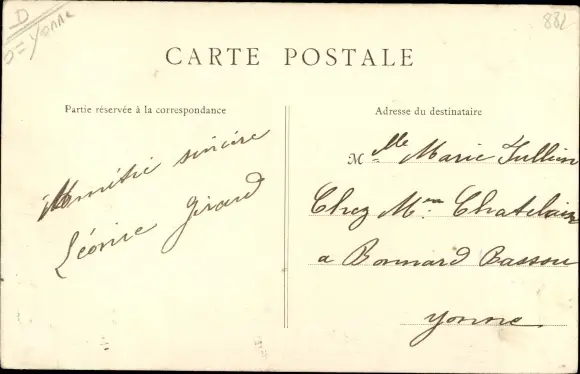 D
D = Yonne
882
CARTE POSTALE
Partie réservée à la correspondance
Adresse du destinataire
Amitié sincère
Léonie Girard
Mlle Marie Jullien
Chez Mme Chatelain
a Bonnard Bassou
Yonne